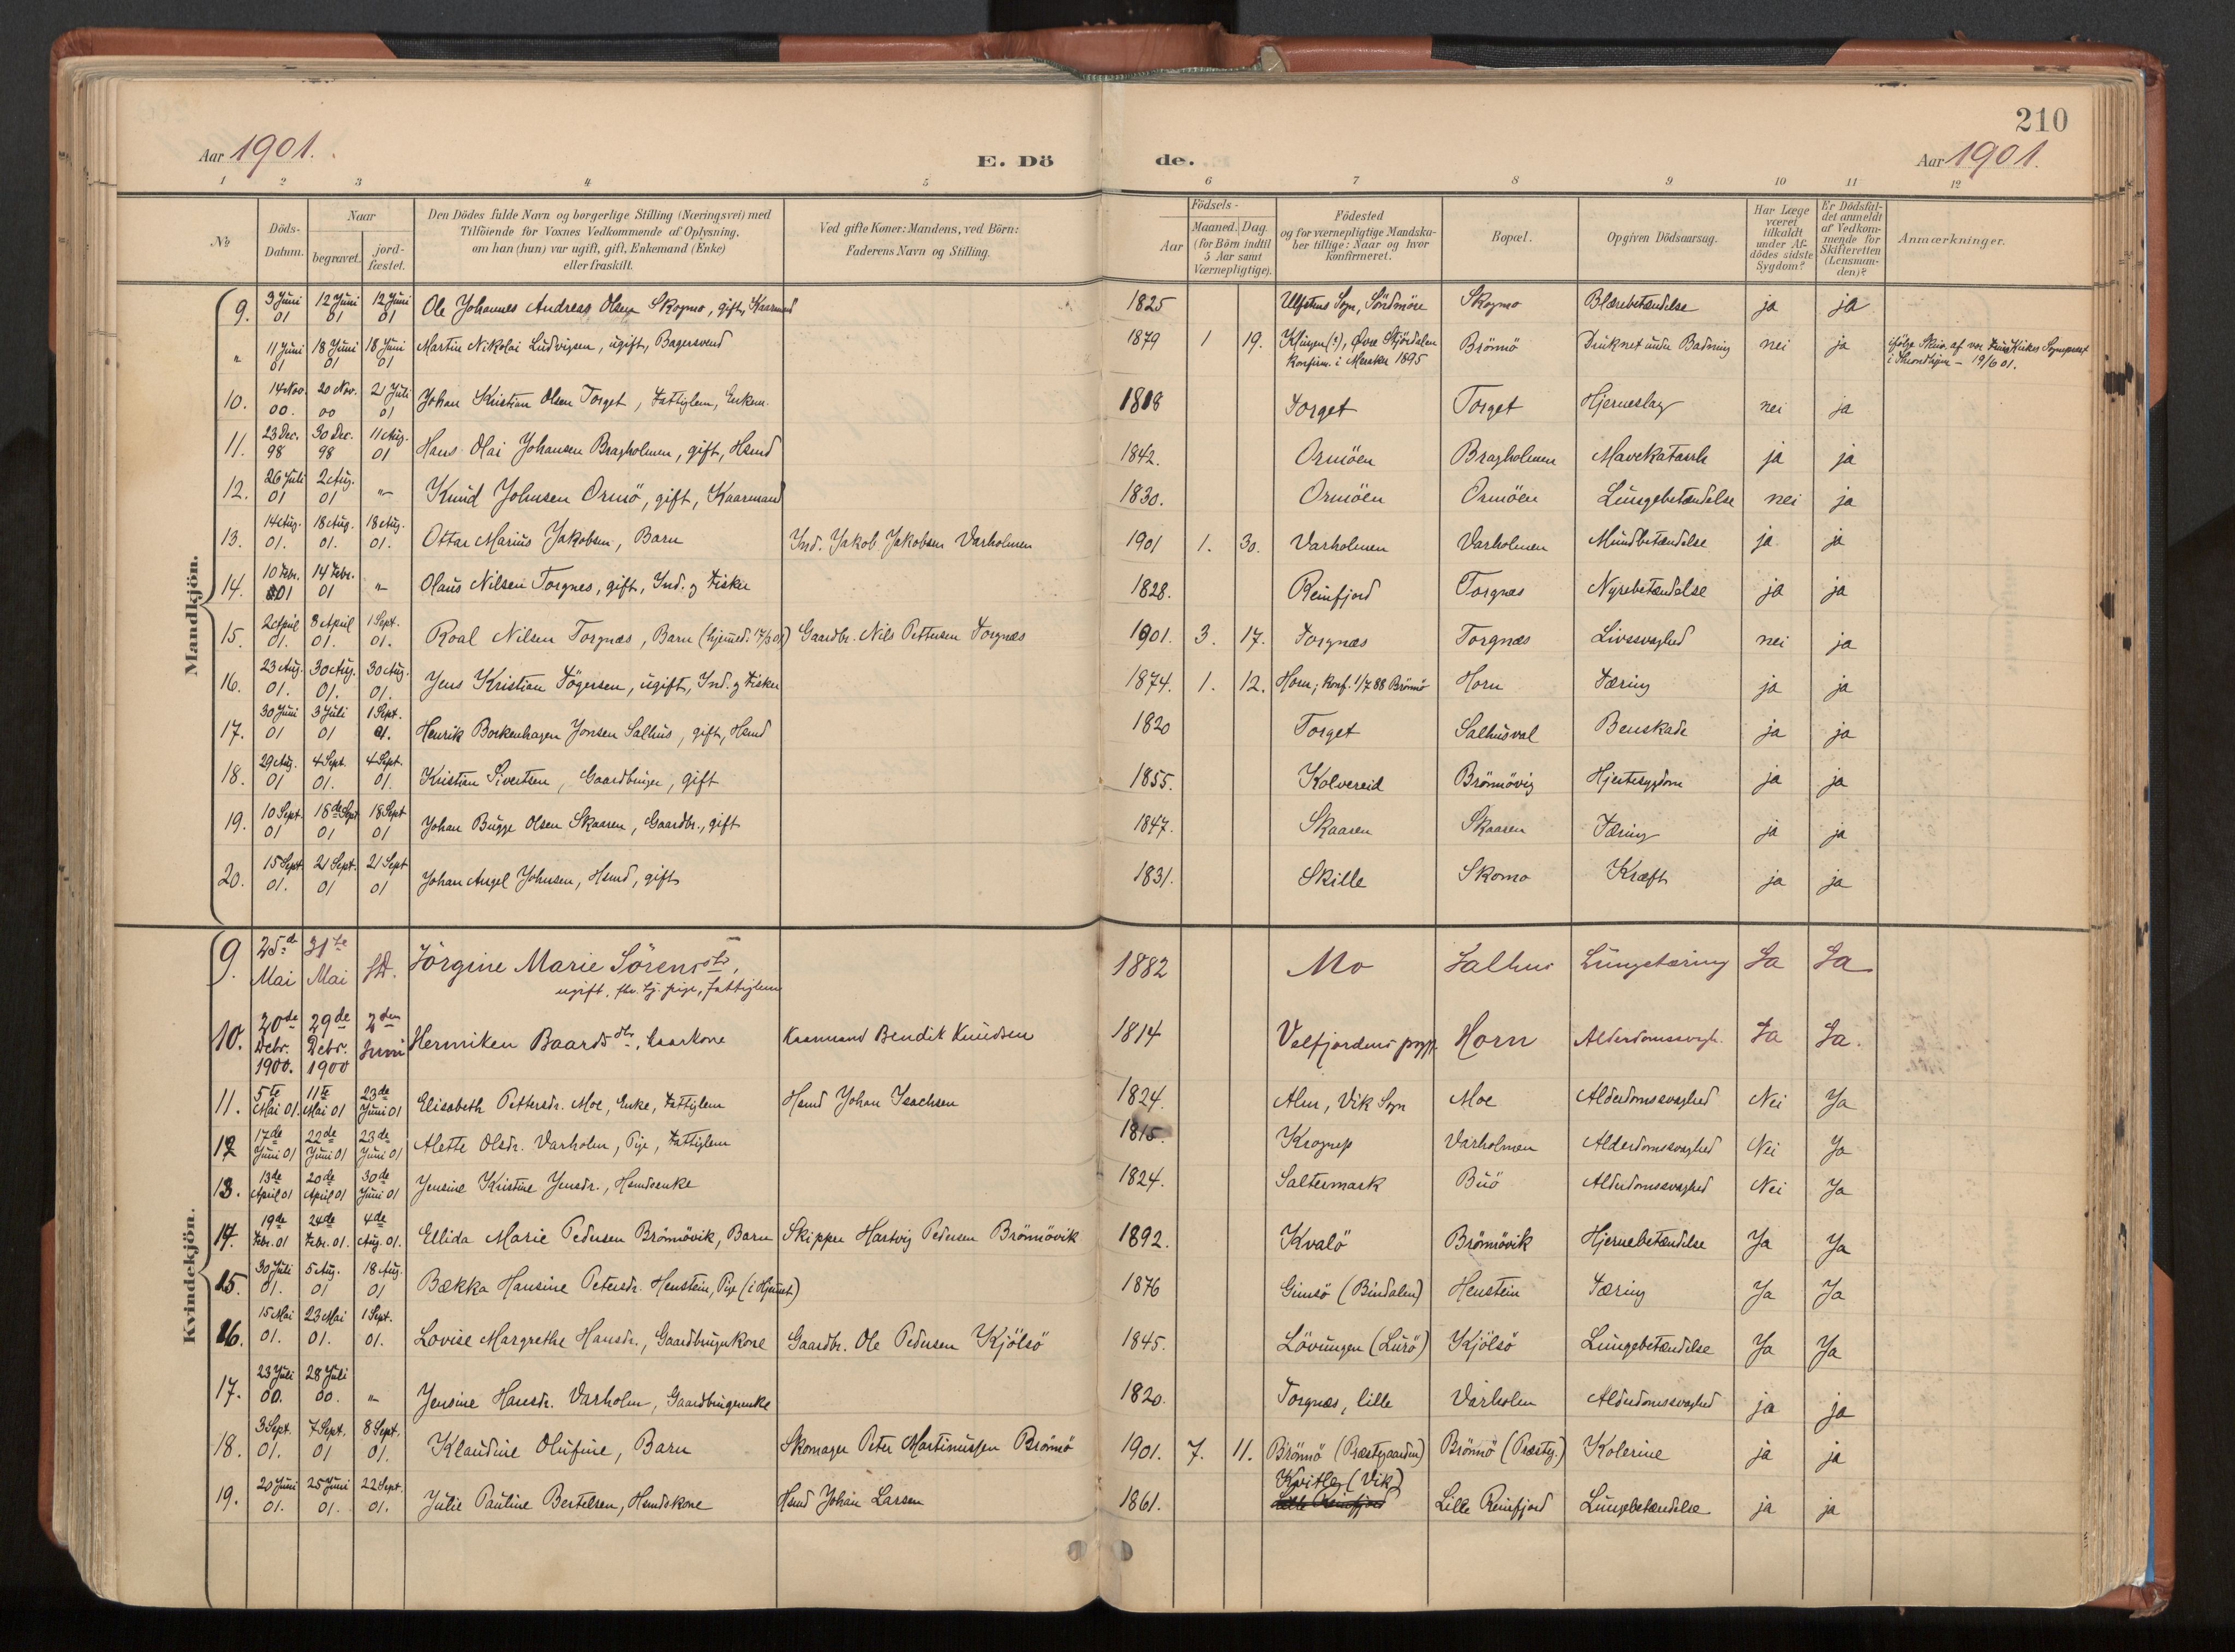 210
Aar 1901. E. Dö de. Aar 1901.
1 2 3 4 5 6 7 8 9 10 11 12
№ Döds-Datum. Naar begravet. jord-fæstet. Den Dödes fulde Navn og borgerlige Stilling (Næringsvei) med Tilföiende for Voxnes Vedkommende af Oplysning, om han (hun) var ugift, gift, Enkemand (Enke) eller fraskilt. Ved gifte Koner: Mandens, ved Börn: Faderens Navn og Stilling. Födsels- Aar Maaned. Dag. (for Börn indtil 5 Aar samt Værnepligtige). Födested og for værnepligtige Mandska-ber tillige: Naar og hvor konfirmeret. Bopæl. Opgiven Dödsaarsag. Har Læge været tilkaldt under Af-dödes sidste Sygdom? Er Dödsfal-det anmeldt af Vedkom-mende for Skifteretten (Lensman-den)? Anmærkninger.
Mandkjön.
9. 3 Juni 01 12 Juni 01 12 Juni 01 Ole Johannes Andreas Olsen Skogmo, gift, Kaarmand 1825 Ulfstens Sogn, Söndmöre Skogmo Blærebetændelse ja ja
" 11 Juni 01 18 Juni 01 18 Juni 01 Martin Nikolai Ludvigsen, ugift, Bagersvend 1879 1 19. Klingen (?), Övre Stjördalen Konfirm. i Meraker 1895 Brönnö Druknet under Badning nei ja ifölge Skriv. af vor Frue Kirkes Sogneprest i Throndhjem - 19/6 01.
10. 14 Nov. 00. 20 Nov. 00 21 Juli 01 Johan Kristian Olsen Torget, Fattiglem, Enkem. 1818 Torget Torget Hjerneslag nei ja
11. 23 Dec. 98 30 Dec. 98 11 Aug. 01 Hans Olai Johansen Bragholmen, gift, Hsmd 1842. Ormöen Bragholmen Mavekatarrh ja ja
12. 26 Juli 01 2 Aug. 01 " Knud Johnsen Ormö, gift, Kaarmand 1830. Ormöen Ormöen Lungebetændelse nei ja
13. 14 Aug. 01. 18 Aug. 01. 18 Aug. 01. Ottar Marius Jakobsen, Barn Ind. Jakob Jakobsen Varholmen 1901 1. 30. Varholmen Varholmen Mundbetændelse ja ja
14. 10 Febr. 01 14 Febr. 01 " Olaus Nilsen Torgnes, gift, Ind. g Fisker 1828. Reinfjord Torgnes Nyrebetændelse ja ja
15. 2 April 01. 8 April 01. 1 Sept. 01. Roal Nilsen Torgnæs, Barn (hjemmed. 17/3 01) Gaardbr. Nils Pettersen Torgnæs 1901. 3. 17. Torgnæs Torgnæs Livssvaghed nei ja
16. 23 Aug. 01. 30 Aug. 01. 30 Aug. 01. Jens Kristian Tögersen, ugift, Ind. g Fisker 1874. 1. 12. Horn; Konf. 1/7 88 Brönnö Horn Tæring ja ja
17. 30 Juni 01 3 Juli 01 1 Sept. 01. Henrik Borkenhagen Jonsen Salhus, gift, Hsmd 1820 Torget Salhusval Benskade ja ja
18. 29 Aug. 01 4 Sept. 01. 4 Sept. 01. Kristian Sivertsen, Gaardbruger, gift 1855. Kolvereid Brönnövig Hjertesygdom ja ja
19. 10 Sept. 01 18de Sept 01 18 Sept 01 Johan Bugge Olsen Skaaren, Gaardbr., gift 1847. Skaaren Skaaren Tæring ja ja
20. 15 Sept. 01. 21 Sept. 01 21 Sept 01 Johan Angel Johnsen, Hsmd, gift 1831. Skille Skomo Kræft ja ja
Kvindekjön.
9. 25d Mai 31te Mai Jörgine Marie Sörensdtr, ugift, fhv. tj. pige, fattiglem 1882 Mo Salhus Lungetæring Ja Ja
10. 20de Debr. 1900. 29de Debr. 1900 2den Juni Henniken Baardsdtr, kaarkone Kaarmand Bendik Knudsen 1814 Velfjordens prgj. Horn Alderdomssvagh. Ja Ja.
11. 5te Mai 01. 11te Mai 01 23de Juni 01 Elisabeth Pettersdr. Moe, Enke, Fattiglem Hsmd Johan Isachsen 1824. Alm, Vik Sogn Moe Alderdomssvaghed Nei Ja
12 17de Juni 01 22de Juni 01 23de Juni 01 Alette Olsdr. Varholm, Pige, Fattiglem 1815. Krognes Varholmen Alderdomssvaghed Nei Ja
13. 13de April 01 20de April 01 30de Juni 01 Jensine Kristine Jensdr., Hsmdsenke 1824. Saltermark Buö Alderdomssvaghed Nei Ja
14. 19de Febr. 01 24de Febr. 01. 4de Aug. 01. Ellida Marie Pedersen Brönnövik, Barn Skipper Hartvig Pedersen Brönnövik 1892. Kvalö Brönnövik Hjernebetændelse Ja Ja
15. 30 Juli 01. 5 Aug. 01 18 Aug. 01 Bækka Hansine Petersdr. Henstein, Pige (i Hjemmet) 1876 Gimsö (Bindalen) Henstein Tæring Ja Ja
16. 15 Mai 01. 23 Mai 01. 1 Sept. 01. Lovise Margrethe Hansdr., Gaardbrugerkone Gaardbr. Ole Pedersen Kjölsö 1845. Lövungen (Lurö) Kjölsö Lungebetændelse Ja Ja
17. 23 Juli 00. 28 Juli 00. " Jensine Hansdr. Varholm, Gaardbrugerenke 1820. Torgnæs, lille Varholm Alderdomssvaghed ja ja
18. 3 Sept. 01. 7 Sept. 01 8 Sept. 01. Klaudine Olufine, Barn Skomager Peter Martinussen Brönnö 1901. 7. 11. Brönnö (Præstgaarden) Brönnö (Præstg.) Kolerine ja ja
19. 20 Juni 01. 25 Juni 01. 22 Sept. 01. Julie Pauline Bertelsen, Hsmdskone Hsmd Johan Larsen 1861. Kvitley (Vik) Lille Reinfjord Lungebetændelse ja ja